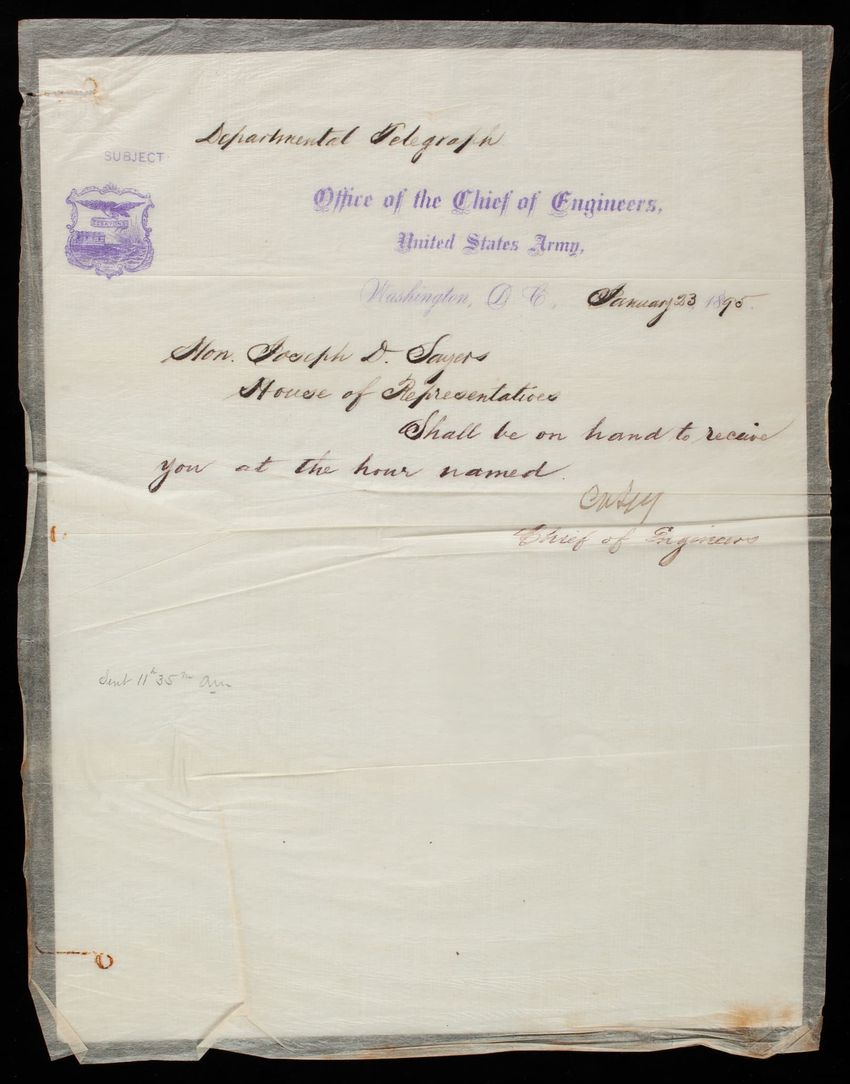 Departmental Telegraph
SUBJECT
ESSAYONS
Office of the Chief of Engineers,
United States Army,
Washington, D.C., January 23, 1895.
Hon. Joseph D. Sayers
House of Representatives
Shall be on hand to receive
you at the hour named.
Casey
Chief of Engineers
Sent 11h 35m am